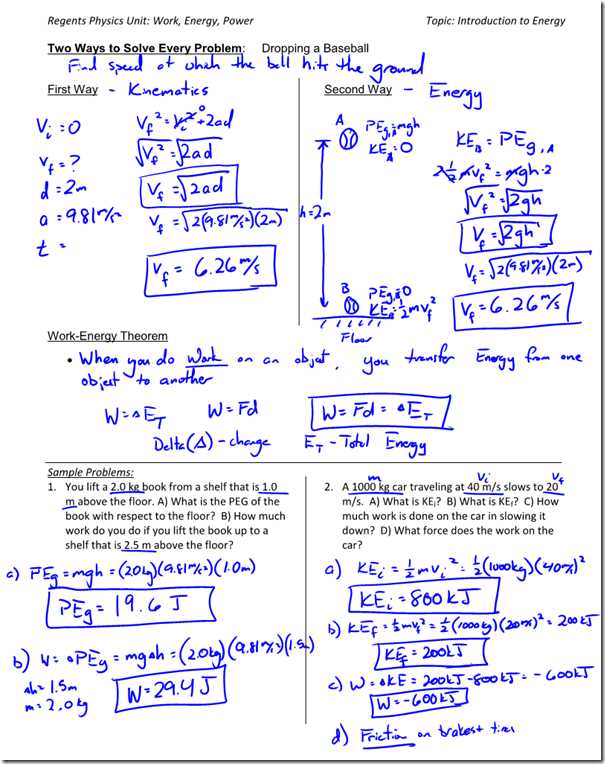 Regents Physics Unit: Work, Energy, Power Topic: Introduction to Energy
Two Ways to Solve Every Problem: Dropping a Baseball
Find speed at which the ball hits the ground
First Way - Kinematics
Vi = 0
Vf = ?
d = 2m
a = 9.81 m/s²
t =
Vf² = Vi² + 2ad
0
√Vf² = √2ad
Vf = √2ad
Vf = √2(9.81m/s²)(2m)
Vf = 6.26 m/s
Second Way - Energy
A
PEg,A = mgh
KEA = 0
h = 2m
B
PEg,B = 0
KEB = ½mvf²
Floor
KEB = PEg,A
2 ½ mvf² = mgh · 2
√Vf² = √2gh
Vf = √2gh
Vf = √2(9.81m/s²)(2m)
Vf = 6.26 m/s
Work-Energy Theorem
• When you do Work on an object, you transfer Energy from one
object to another
W = ΔET W = Fd W = Fd = ΔET
Delta(Δ) - change ET - Total Energy
Sample Problems:
1. You lift a 2.0 kg book from a shelf that is 1.0
m above the floor. A) What is the PEG of the
book with respect to the floor? B) How much
work do you do if you lift the book up to a
shelf that is 2.5 m above the floor?
a) PEg = mgh = (2.0kg)(9.81m/s²)(1.0m)
PEg = 19.6 J
b) W = ΔPEg = mgΔh = (2.0kg)(9.81m/s²)(1.5m)
Δh = 1.5m
m = 2.0kg
W = 29.4 J
m Vi Vf
2. A 1000 kg car traveling at 40 m/s slows to 20
m/s. A) What is KEi? B) What is KEf? C) How
much work is done on the car in slowing it
down? D) What force does the work on the
car?
a) KEi = ½mvi² = ½(1000kg)(40m/s)²
KEi = 800kJ
b) KEf = ½mvf² = ½(1000kg)(20m/s)² = 200kJ
KEf = 200kJ
c) W = ΔKE = 200kJ - 800kJ = -600kJ
W = -600kJ
d) Friction on brakes + tires